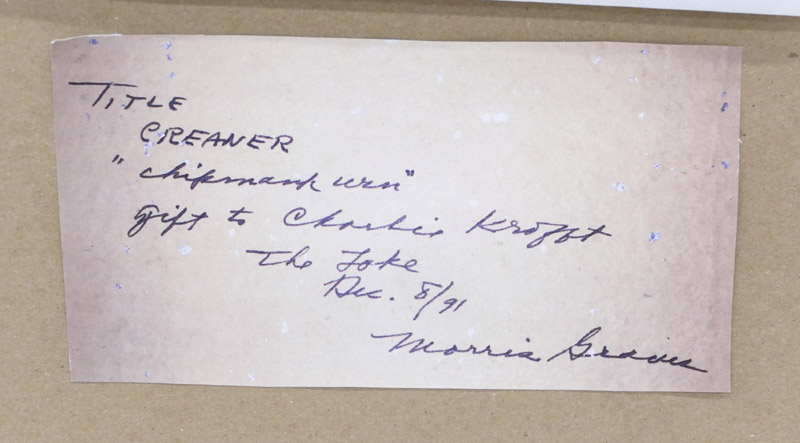 TITLE
CREAMER
"chipmunk urn"
gift to Charlie Krafft
The Lake
Dec. 8/91
Morris Graves